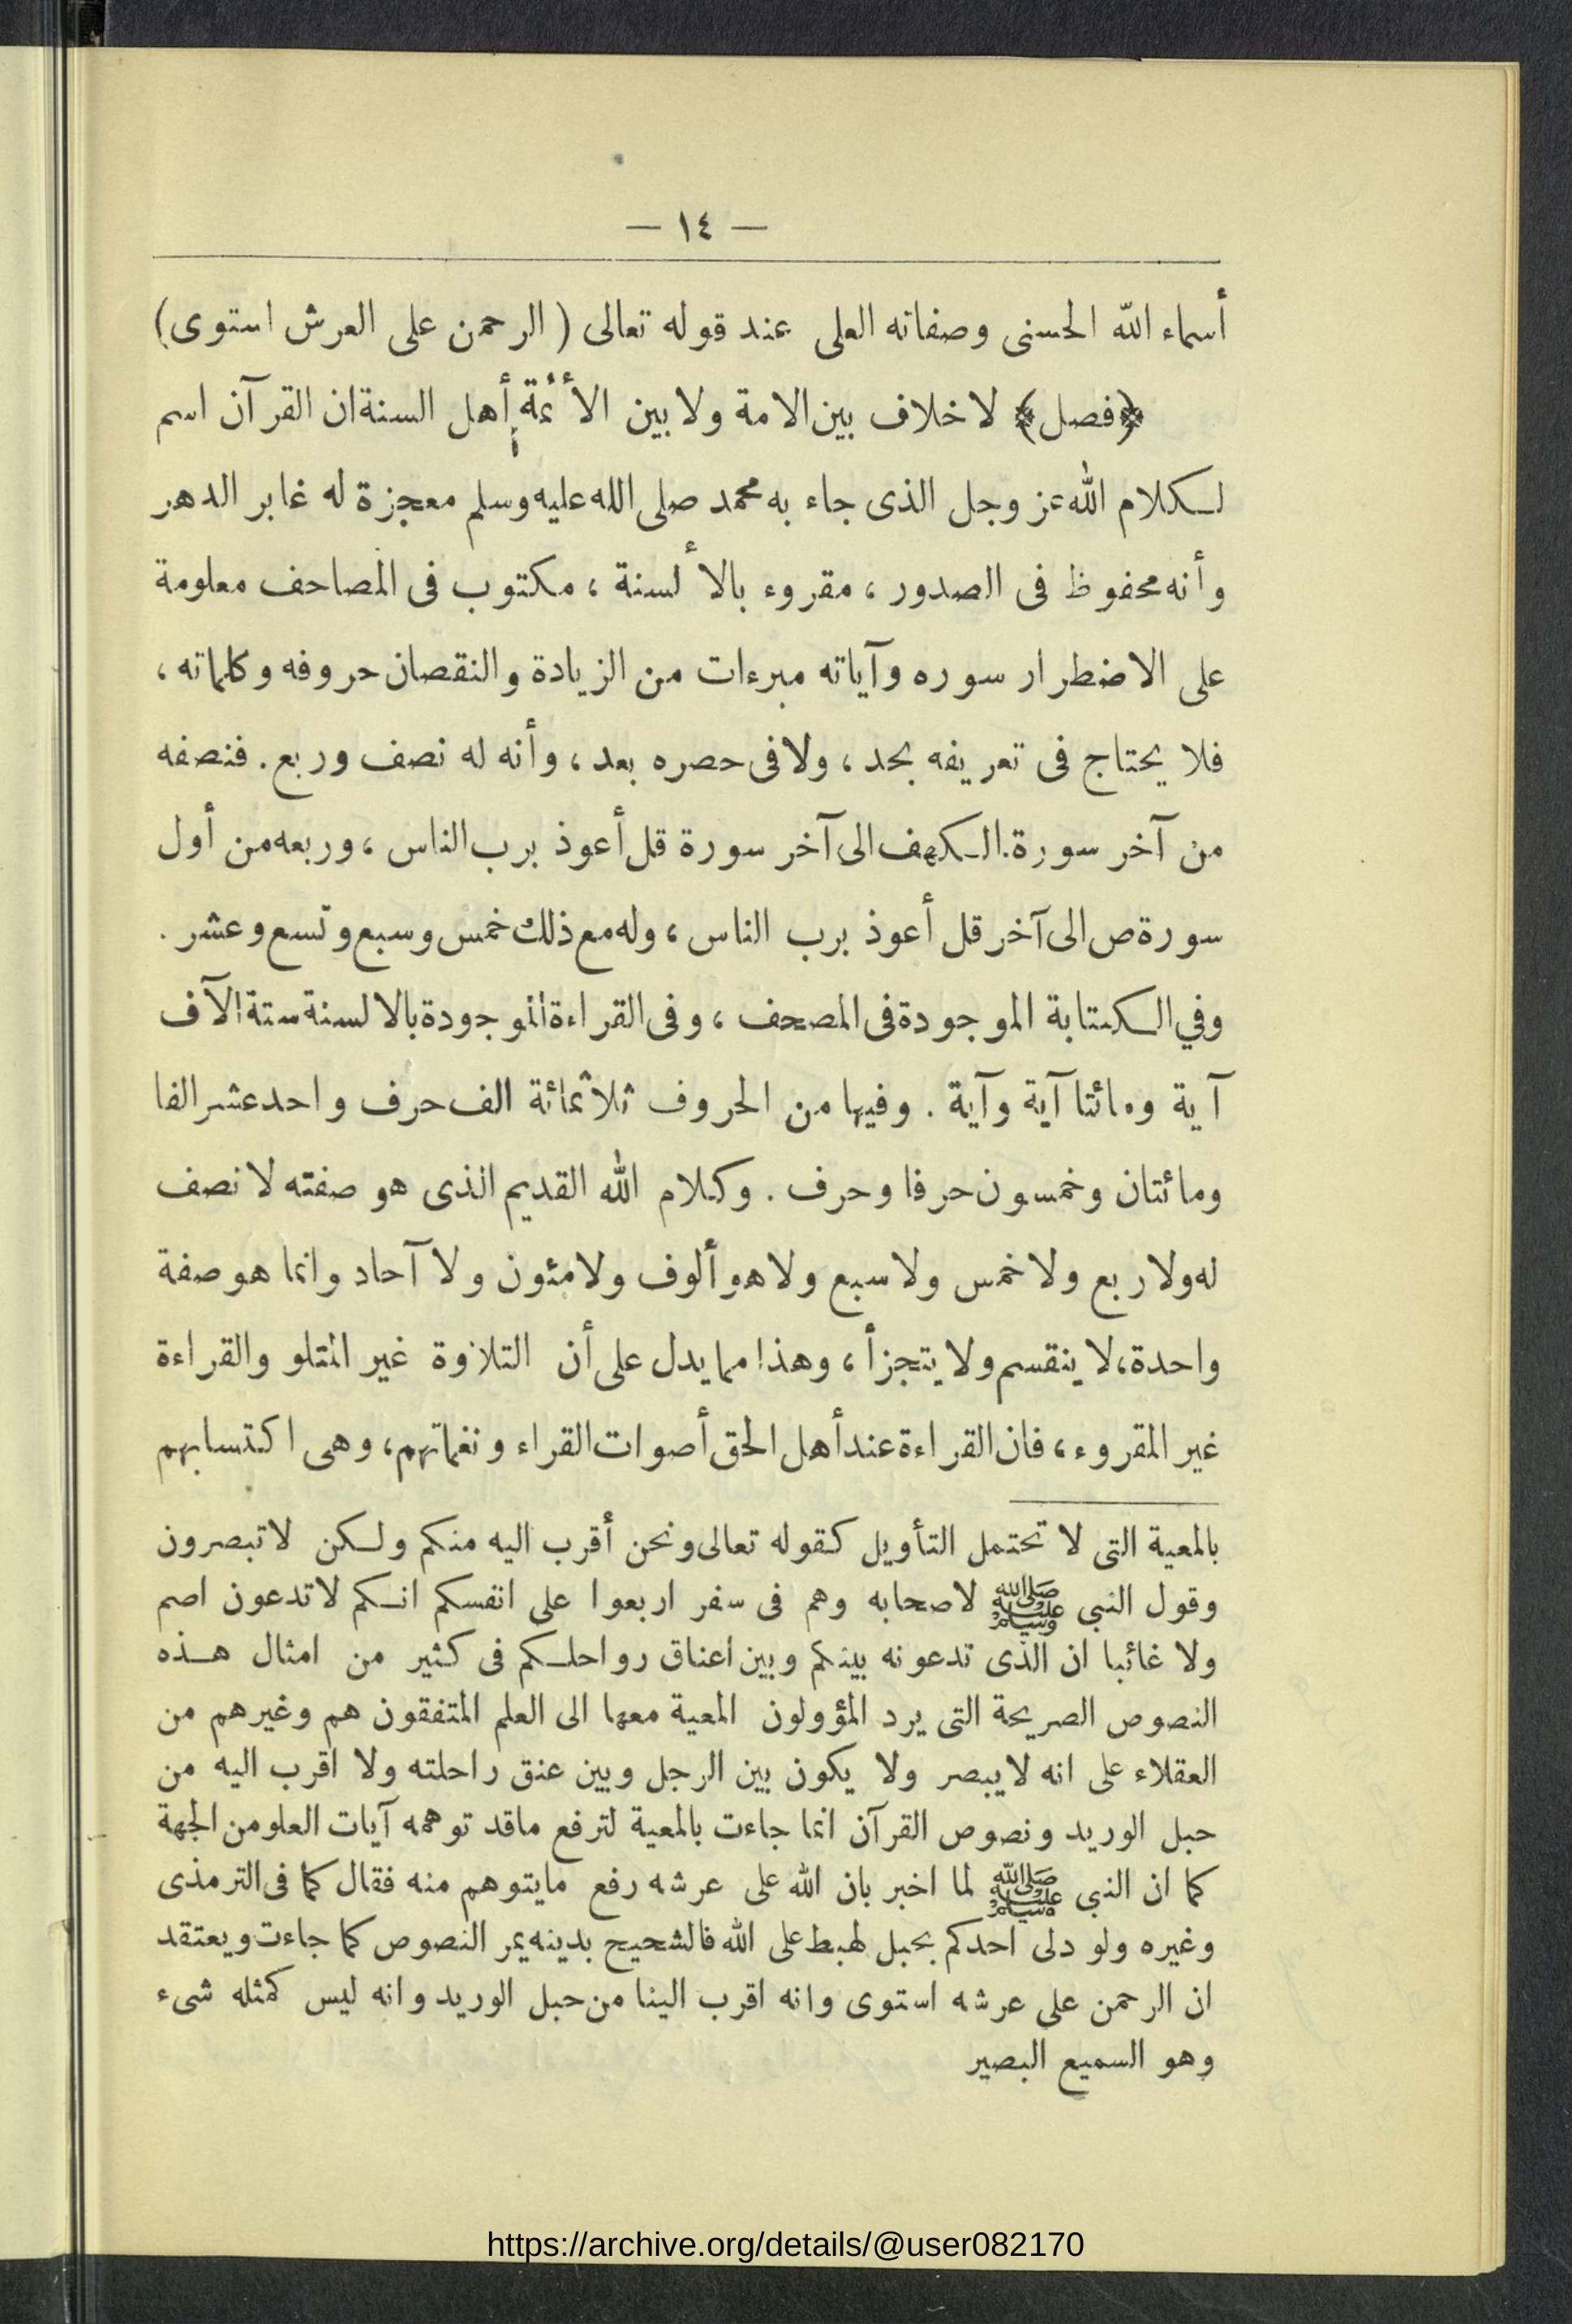 — ١٤ —
أسماء الله الحسنى وصفاته العلى عند قوله تعالى ( الرحمن على العرش استوى)
﴿فصل﴾ لا خلاف بين الامة ولا بين الأئمة أهل السنة ان القرآن اسم
لكلام الله عز وجل الذى جاء به محمد صلى الله عليه وسلم معجزة له غابر الدهر
وأنه محفوظ فى الصدور ، مقروء بالألسنة ، مكتوب فى المصاحف معلومة
على الاضطرار سوره وآياته مبرءات من الزيادة والنقصان حروفه وكلماته ،
فلا يحتاج فى تعريفه بحد ، ولا فى حصره بعد ، وأنه له نصف وربع . فنصفه
من آخر سورة الكهف الى آخر سورة قل أعوذ برب الناس ، وربعه من أول
سورة ص الى آخر قل أعوذ برب الناس ، وله مع ذلك خمس وسبع وتسع وعشر .
وفي الكتابة الموجودة فى المصحف ، وفى القراءة الموجودة بالالسنة ستة الآف
آية ومائتا آية وآية . وفيها من الحروف ثلاثمائة الف حرف واحد عشر الفا
ومائتان وخمسون حرفا وحرف . وكلام الله القديم الذى هو صفته لا نصف
له ولا ربع ولا خمس ولا سبع ولا هو ألوف ولا مئون ولا آحاد وانما هو صفة
واحدة، لا ينقسم ولا يتجزأ ، وهذا مما يدل على أن التلاوة غير المتلو والقراءة
غير المقروء ، فان القراءة عند أهل الحق أصوات القراء ونغماتهم، وهى اكتسابهم
بالمعية التى لا تحتمل التأويل كقوله تعالى ونحن أقرب اليه منكم ولكن لا تبصرون
وقول النبي ﷺ لاصحابه وهم فى سفر اربعوا على انفسكم انكم لا تدعون اصم
ولا غائبا ان الذى تدعونه بينكم وبين اعناق رواحلكم فى كثير من امثال هذه
النصوص الصريحة التى يرد المؤولون المعية معها الى العلم المتفقون هم وغيرهم من
العقلاء على انه لا يبصر ولا يكون بين الرجل وبين عنق راحلته ولا اقرب اليه من
حبل الوريد ونصوص القرآن انما جاءت بالمعية لترفع ماقد توهمه آيات العلو من الجهة
كما ان النبي ﷺ لما اخبر بان الله على عرشه رفع مايتوهم منه فقال كما فى الترمذى
وغيره ولو دلى احدكم بحبل لهبط على الله فالشحيح بدينه يمر النصوص كما جاءت ويعتقد
ان الرحمن على عرشه استوى وانه اقرب الينا من حبل الوريد وانه ليس كمثله شىء
وهو السميع البصير
https://archive.org/details/@user082170